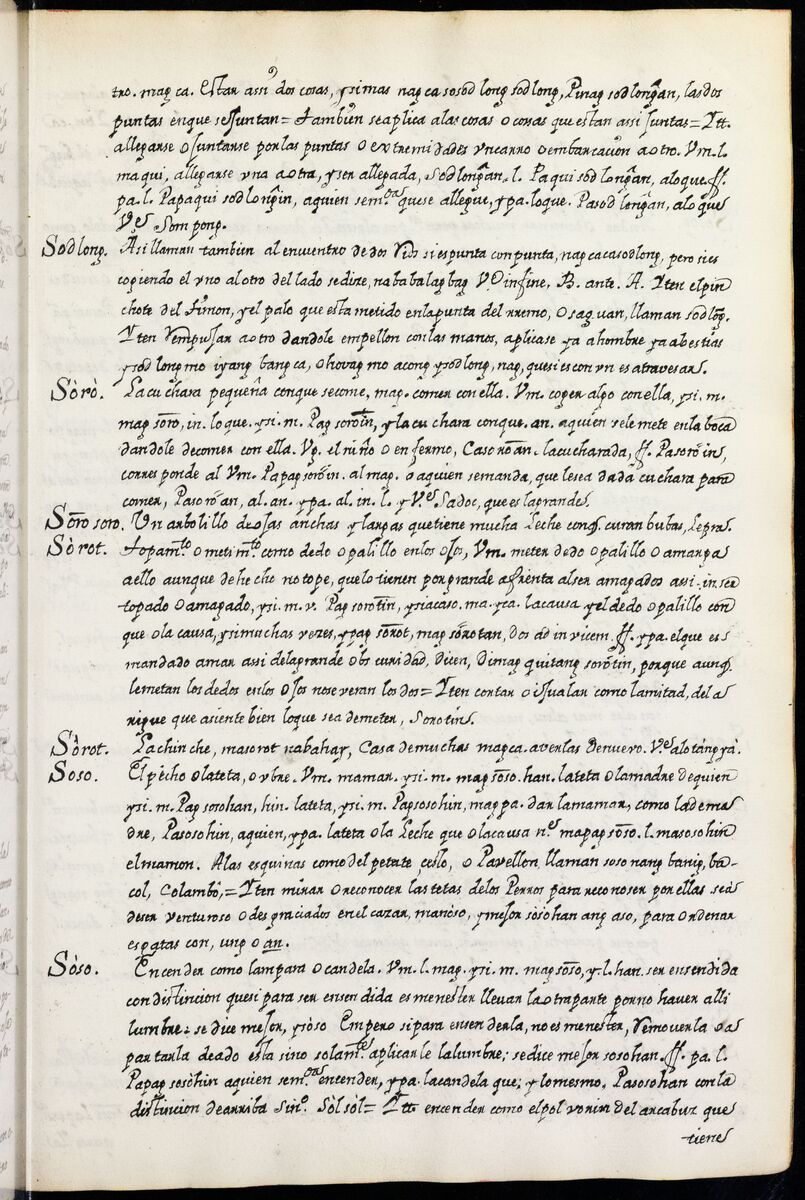 tro. mag ca. Estar assi dos cosas, ysimas nag ca sosod long sod long, Pinag sod longan, las dos
puntas en que se juntan = tambien se aplica alas cosas o cosas que estan assi juntas = Ytt.
allegarse o juntarse por las puntas o extremidades vn carro o embarcacion a otro. Vm. l.
maqui, allegarse vna a otra, y ser allegada, sodlongan. l. Paqui sod longan, aloque. ff.
pa. l. Papaqui sod longin, aquien sem.da que se allegue, y pa. loque. Pasod longan, alo que
Ve Sompong.
Sodlong. Asi llaman tambien al encuentro de dos Rios si es punta con punta, nag ca casodlong, pero si es
cogiendo el vno al otro del lado se dire, nababalagbag V.o in fine. B. ante. A. Yten el pin
chote del timon, y el palo que esta metido en la punta del rremo, o saguan, llaman sodlong.
Yten Rempujar a otro dandole empellon con las manos, aplicase ya a hombre ya a bestias
ysodlong mo iyang bangca, o hovag mo acong ysodlong, nag, que si es con vn es atravesar.
Sòrò. La cuchara pequeña con que se come, mag. comer con ella. Vm. coger algo con ella, y si. m.
mag soro, in. loque. y si. m. Pag sorotin, y la cuchara con que. an. aquien se le mete en la boca
dandole de comer con ella. Vg. el niño o enfermo, Casoroan. la cucharada, ff. Pasoroin,
corresponde al Vm. Papagsoroin. al mag. o aquien se manda, que le sea dada cuchara para
comer, Pasoroan, al. an. y pa. al. in. l. y V.e Sadoc, que es la grande.
Soro soro. Un arbolillo de ojas anchas y largas que tiene mucha Leche con q. curan bubas, Lepra.
Sòrot. topam.to o metim.to como dedo o palillo en los ojos, Vm. meter dedo o palillo o amarga
a ello aunque de hecho no tope, que lo tienen por grande afrenta al ser amagados assi. in ser
topado o amagado, y si. m. v. Pag sorotin, y si acaso. ma. y ca. la causa y el dedo o palillo con
que o la causa, y si muchas vezes, y pag sorot, mag sorotan, dos ad invicem. ff. y pa. el que es
mandado amar assi de la grande obscuridad, dicen, dimag quitang sorotin, porque aunq.
le metan los dedos en los ojos no se veran los dos = Yten cortar o igualar como la mitad, del a
rigue que asiente bien lo que se a de meter, sorotin.
Sòrot. La chinche, masorot na bahay, Casa de muchas mag ca. averlas de nuevo. Ve alo tangya.
Soso. El pecho o la teta, o vbre. Vm. mamar. y si. m. mag soso. han. la teta o la madre de quien
y si. m. Pag sosohan, hin. la teta, y si. m. Pagsosohin, mag pa. dar la mamar, como la de ma
dre, Pasosohin, aquien, y pa. la teta o la Leche que o la causa n.e mapag soso. l. masosohin
el mamon. A las esquinas como del petate cesto, o Pavellon, llaman soso nang banig, ba-
col, Colambò, = Yten mirar o reconocer las tetas de los Perros para reconoser por ellas se a
de ser venturoso o desgraciados en el cazar, manoso, y mejor sosohan ang aso, para ordenar
es gatas con, ung o an.
Sòso. Encender como lampara o candela. Vm. l. mag. y si. m. mag soso, y. l. han. ser ensendida
con distincion que si para ser ensendida es menester llevar la otra parte por no haver alli
lumbre: se dice mejor, ysòso Empero si para ensenderla, no es menester, Removerla o a
partarla de ado esta sino solam.te aplicarle la lumbre; se dice mejor sosohan. ff. pa. l.
Papag sosohin aquien sem.da encender, y pa. la candela que; y lo mesmo, Pasosohan con la
distincion de arriba Sin.o Sòl sol = Ytt. encender como el polvorin del arcabuz que
tiene